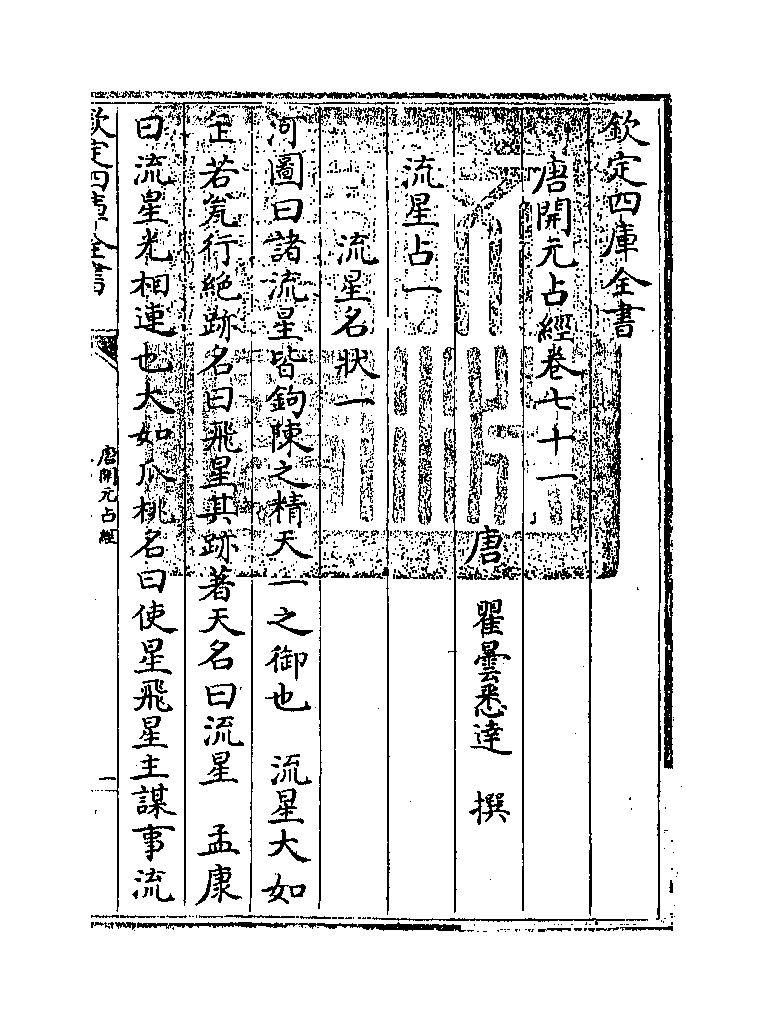 欽定四庫全書
唐開元占經卷七十一
唐 瞿曇悉達 撰
流星占一
流星名狀一
河圖曰諸流星皆鉤陳之精天一之御也 流星大如
缶若瓮行絶跡名曰飛星其跡著天名曰流星 孟康
曰流星光相連也大如瓜桃名曰使星飛星主謀事流
欽定四庫全書
唐開元占經
一